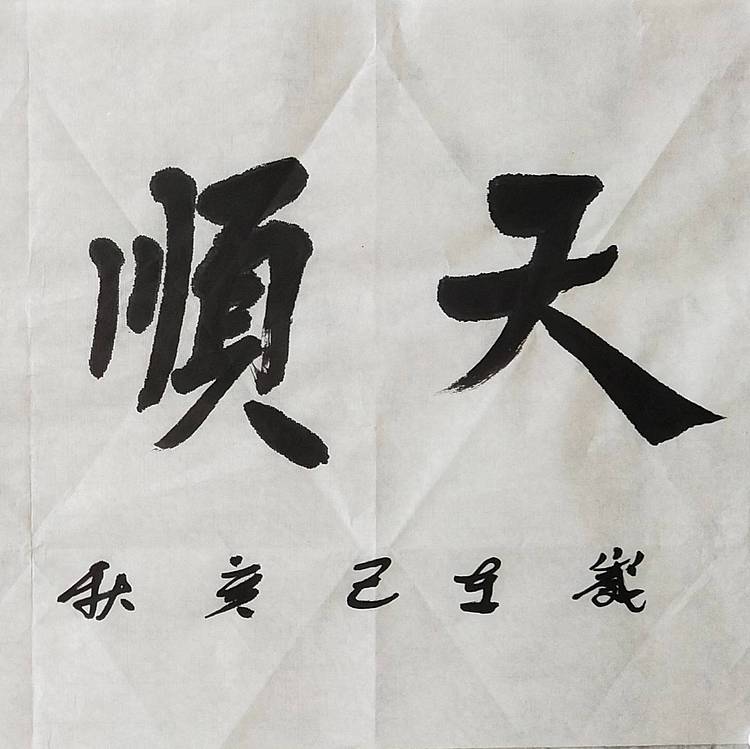 天順
歲在己亥秋